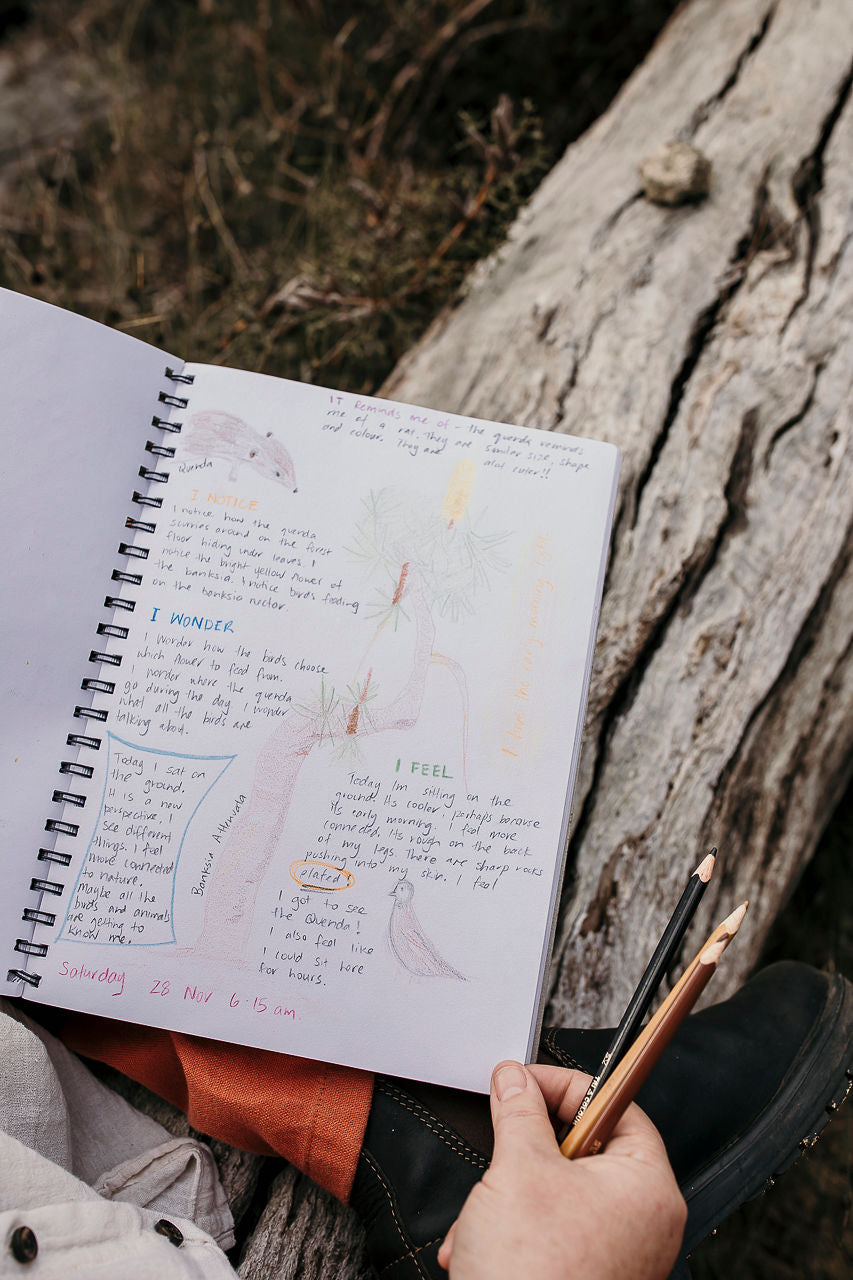 IT Reminds me of - the quenda reminds
me of a rat. They are similar size, shape
and colour. They are alot cuter!!
Quenda
I NOTICE
I notice how the quenda
scurries around on the forest
floor hiding under leaves. I
notice the bright yellow flower of
the banksia. I notice birds feeding
on the banksia nectar.
I WONDER
I wonder how the birds choose
which flower to feed from.
I wonder where the quenda
go during the day. I wonder
what all the birds are
talking about.
Today I sat on
the ground.
It is a new
perspective. I
see different
things. I feel
more connected
to nature.
maybe all the
birds and animals
are getting to
know me.
Banksia Attenuata
I love the early morning light
I FEEL
Today Im sitting on the
ground. Its cooler, perhaps because
its early morning. I feel more
connected. Its rough on the back
of my legs. There are sharp rocks
pushing into my skin. I feel
elated!
I got to see
the Quenda!
I also feel like
I could sit here
for hours.
Saturday 28 Nov 6.15 am.